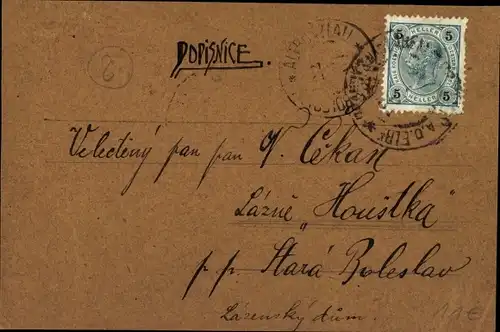 DOPISNICE.
5 HELLER 5
5 HELLER 5
Velectěný pan pan V. Čekan
Lázně „Houštka"
p. p. Stará Boleslav
Lázenský dům.
11€